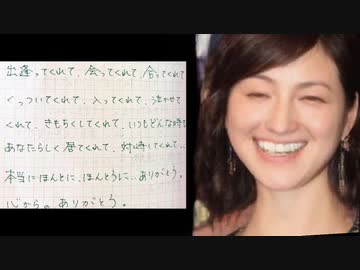 出逢ってくれて、会ってくれて、合ってくれて
くっついてくれて、入ってくれて、泣かせて
くれて、きもちくしてくれて、いつもどんな時も
あなたらしく居てくれて、対峙してくれて…
本当にほんとに、ほんとうに…ありがとう。
心からの ありがとう。